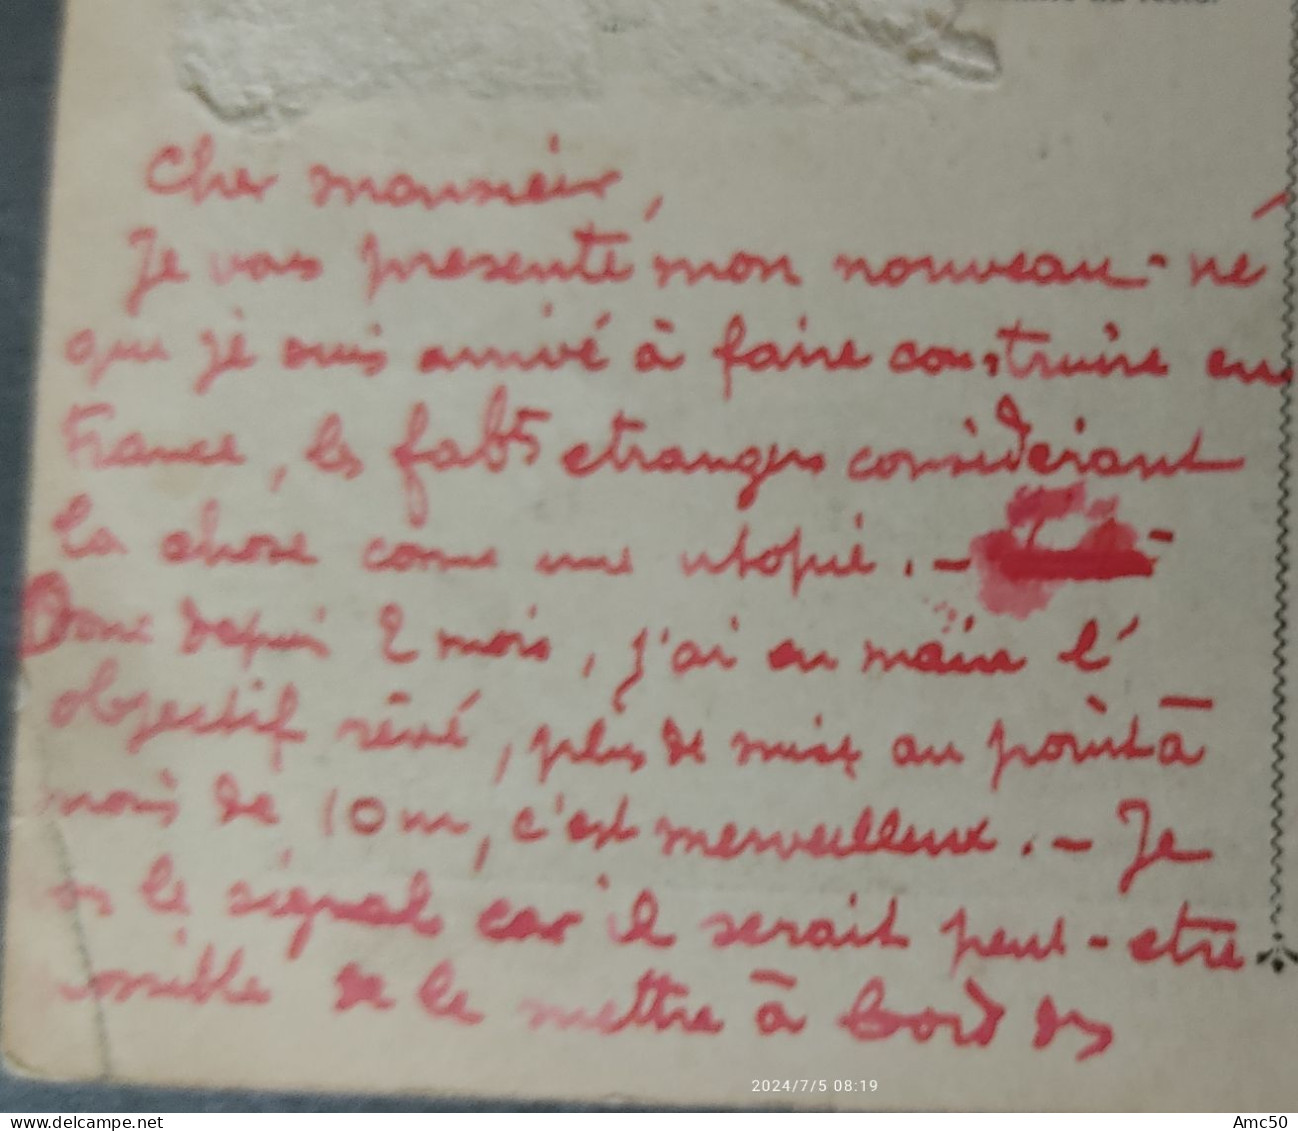 Cher monsieur,
Je vous presente mon nouveau-né
que je suis arrivé à faire construire en
France, les fabts etrangers considérant
la chose come une utopie. -
Donc depuis 2 mois, j'ai en main l'
objectif rêvé, plus de mise au point à
moins de 10m, c'est merveilleux. - Je
le signal car il serait peut-etre
possible de le mettre à bord des
2024/7/5 08:19
Amc50